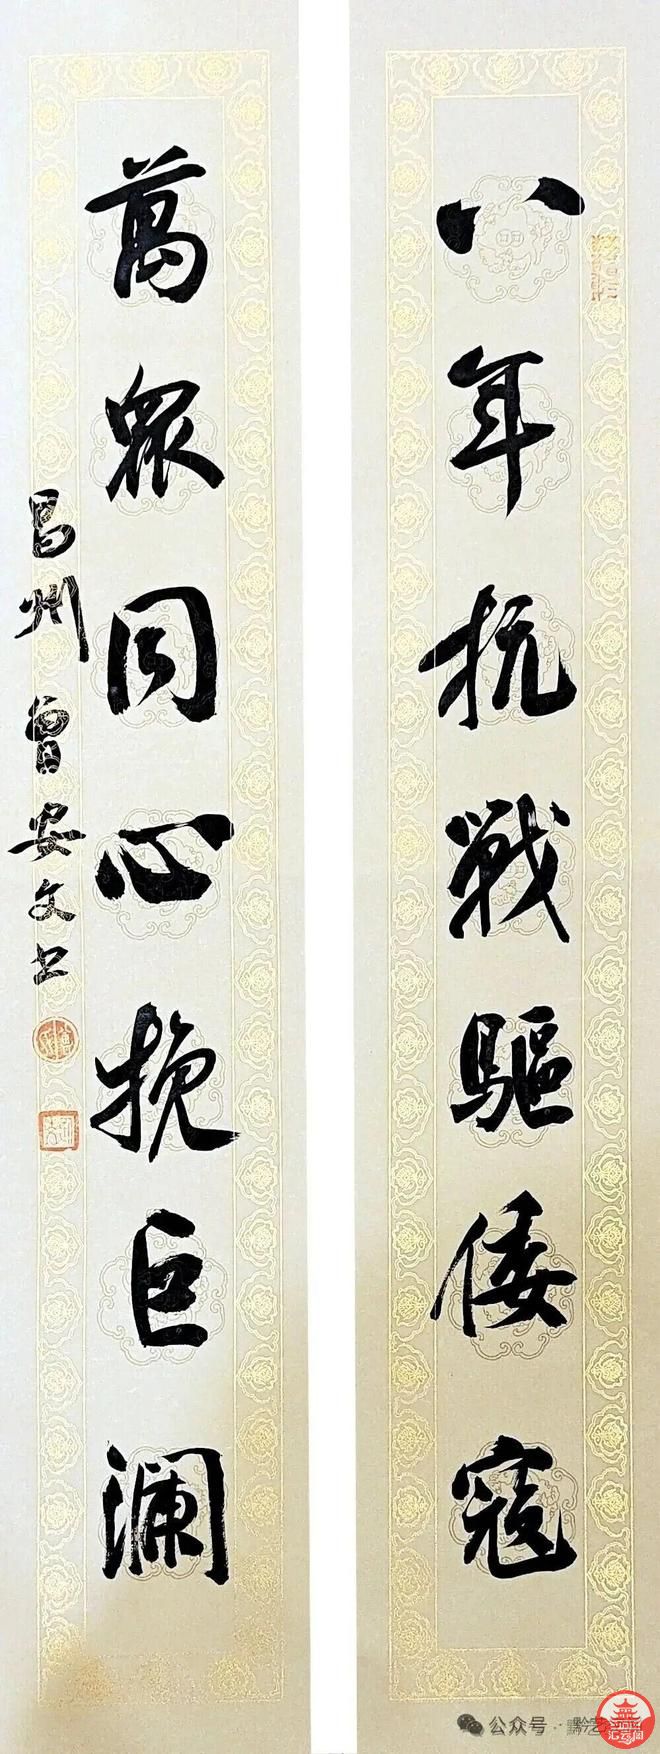 八年抗戰驅倭寇
萬眾同心挽巨瀾
昌州曾安文书
公众号·黔艺
汇云阁